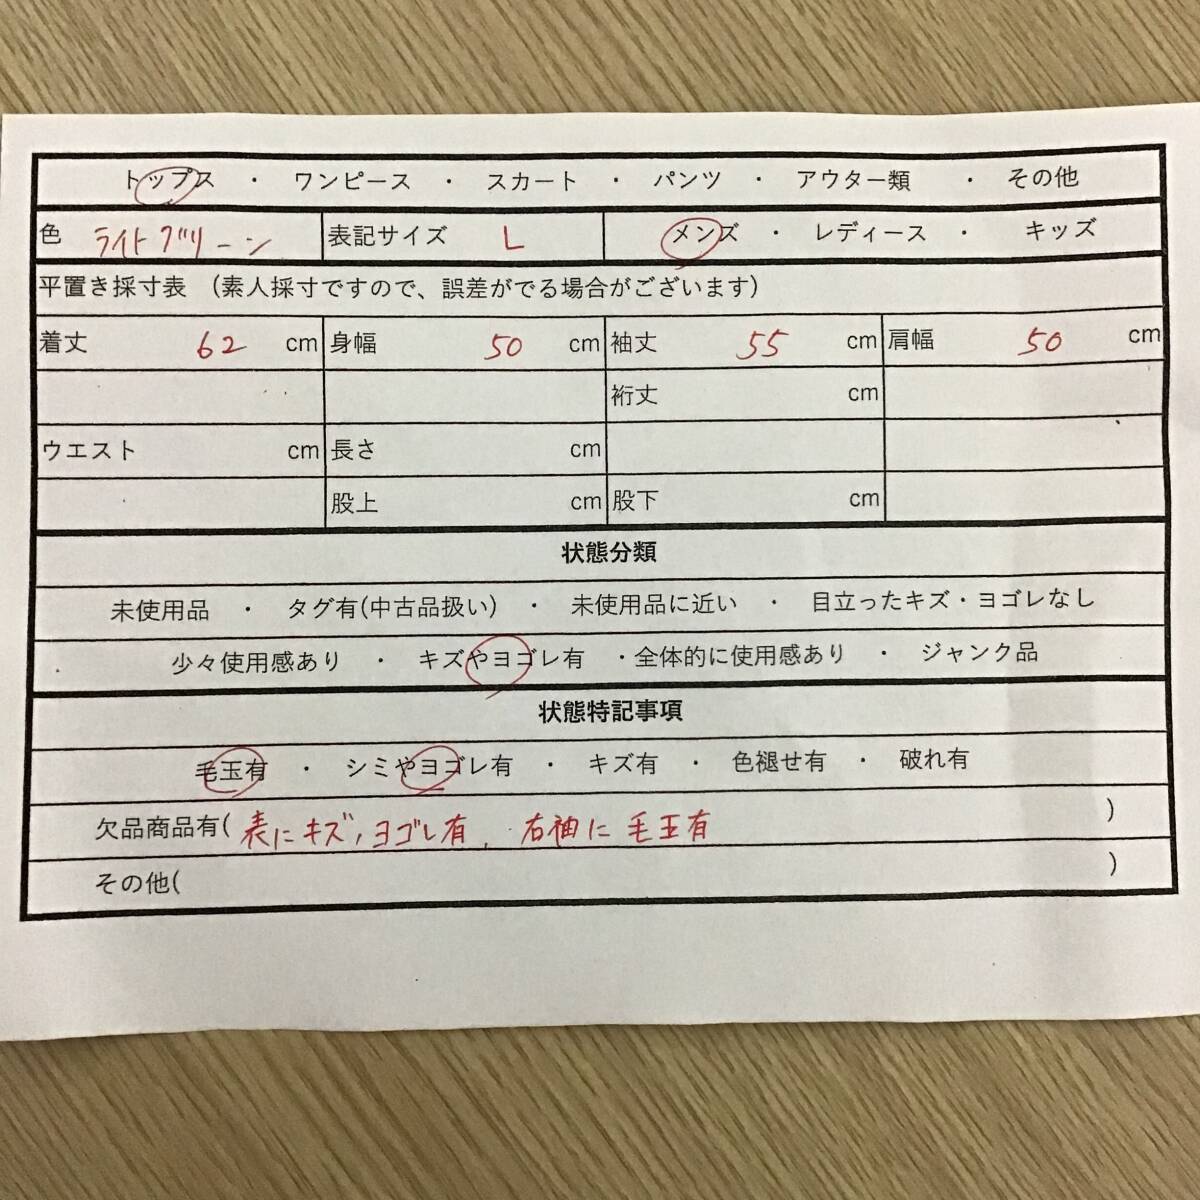 トップス ・ ワンピース ・ スカート ・ パンツ ・ アウター類 ・ その他
色 ライトグリーン 表記サイズ L メンズ ・ レディース ・ キッズ
平置き採寸表 (素人採寸ですので、誤差がでる場合がございます)
着丈 62 cm 身幅 50 cm 袖丈 55 cm 肩幅 50 cm
裄丈 cm
ウエスト cm 長さ cm
股上 cm 股下 cm
状態分類
未使用品 ・ タグ有(中古品扱い) ・ 未使用品に近い ・ 目立ったキズ・ヨゴレなし
少々使用感あり ・ キズやヨゴレ有 ・全体的に使用感あり ・ ジャンク品
状態特記事項
毛玉有 ・ シミやヨゴレ有 ・ キズ有 ・ 色褪せ有 ・ 破れ有
欠品商品有( 表にキズ,ヨゴレ有, 右袖に毛玉有 )
その他( )